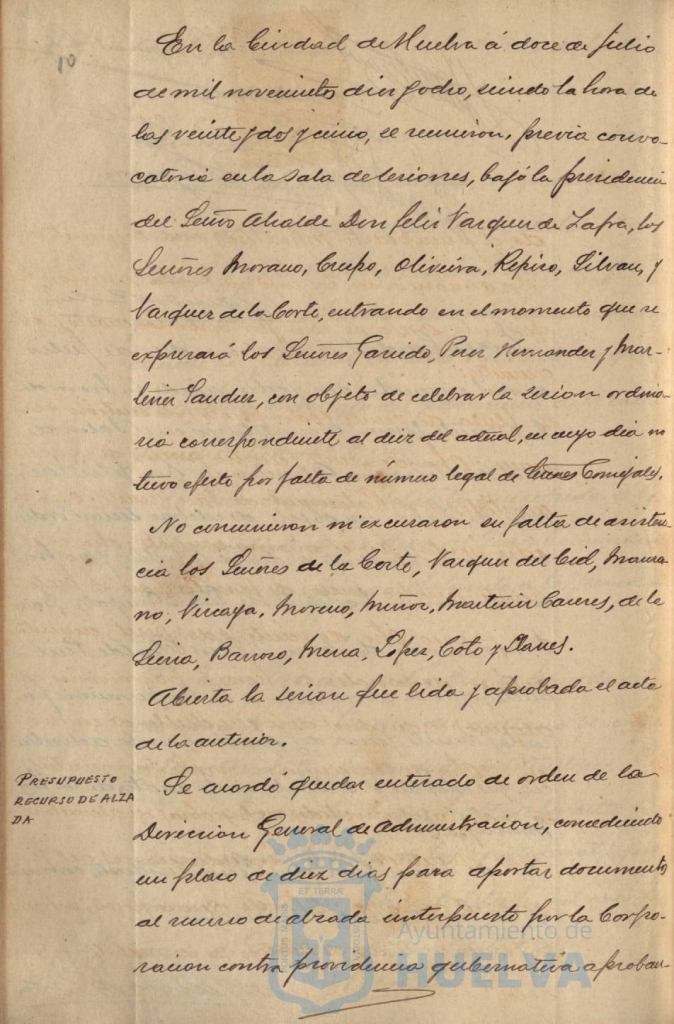 10
En la Ciudad de Huelva á doce de Julio
de mil novecientos diez y ocho, siendo la hora de
las veinte y dos y cinco, se reunieron, previa convo-
catoria en la sala de sesiones, bajo la presidencia
del Señor Alcalde Don Felix Vazquez de Zafra, los
Señores Morano, Crespo, Oliveira, Repiso, Silvan, y
Vazquez de la Corte, entrando en el momento que se
expresará los Señores Garrido, Perez Hernandez y Mar-
tinez Sanchez, con objeto de celebrar la sesion ordina-
ria correspondiente al diez del actual, en cuyo dia no
tuvo efecto por falta de número legal de Señores Concejales.
No concurrieron ni excusaron su falta de asisten-
cia los Señores de la Corte, Vazquez del Cid, Manza-
no, Vizcaya, Moreno, Muñoz, Martinez Caceres, de la
Barroso, Mena, Lopez, Coto y Llanes.
Abierta la sesion fue leida y aprobada el acta
de la anterior.
PRESUPUESTO
RECURSO DE ALZA
DA
Se acordó quedar enterado de orden de la
Direccion General de Administracion, concediendo
un plazo de diez dias para aportar documentos
al recurso de alzada interpuesto por la Corpo-
racion contra providencia gubernativa aproban-
Ayuntamiento de
HUELVA
ET TERRÆ